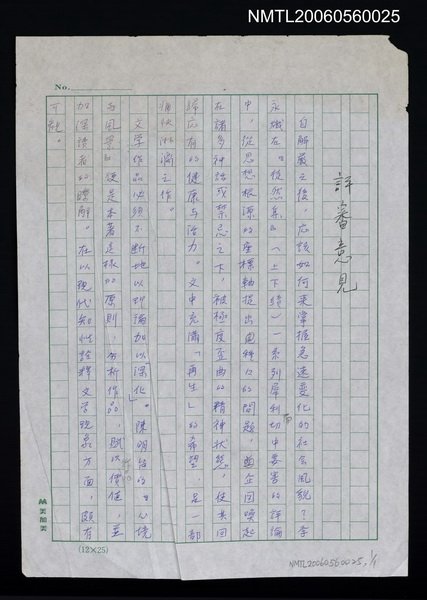 NMTL20060560025
No.
評審意見
自解嚴之後，應該如何來掌握急速變化的社會風貌？李
永熾在《從然系》（上下續）一系列犀利而切中要害的評論
中，從思想根源的座標軸提出回歸的問題，企圖喚起
在諸多神話或禁忌之下，被極度歪曲的精神狀態，使其回
歸應有的健康与活力。文中充滿「再生」的希望，是一部
痛快淋漓之作。
文学作品必須不斷地以理論加以深化。陳明台的《心境
与風景》便是本著這樣的原則，分析作品，賦以價值，並
加深讀者的瞭解。在以現代知性詮釋文学現象方面，頗有
可観。
(12×25)
NMTL20060560025, 1/1